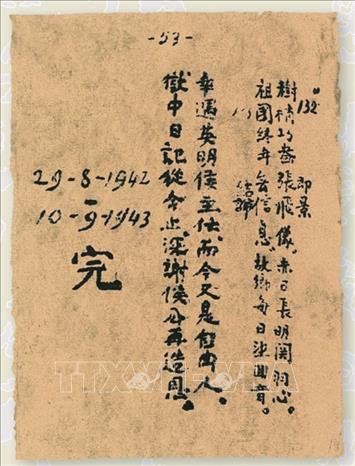 -53-
132
即景
樹梢巧畫張飛像、赤日長明関羽心。
祖国終年無信息、故鄉每日望回音。
結論
幸遇英明侯主任、而今又是自由人、
獄中日記從今止、深謝侯公再造恩。
29-8-1942
-
10-9-1943
完